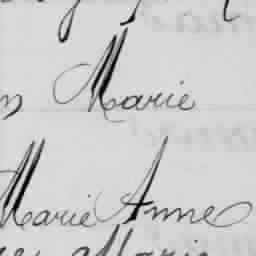 Marie
Marie Anne
Marie